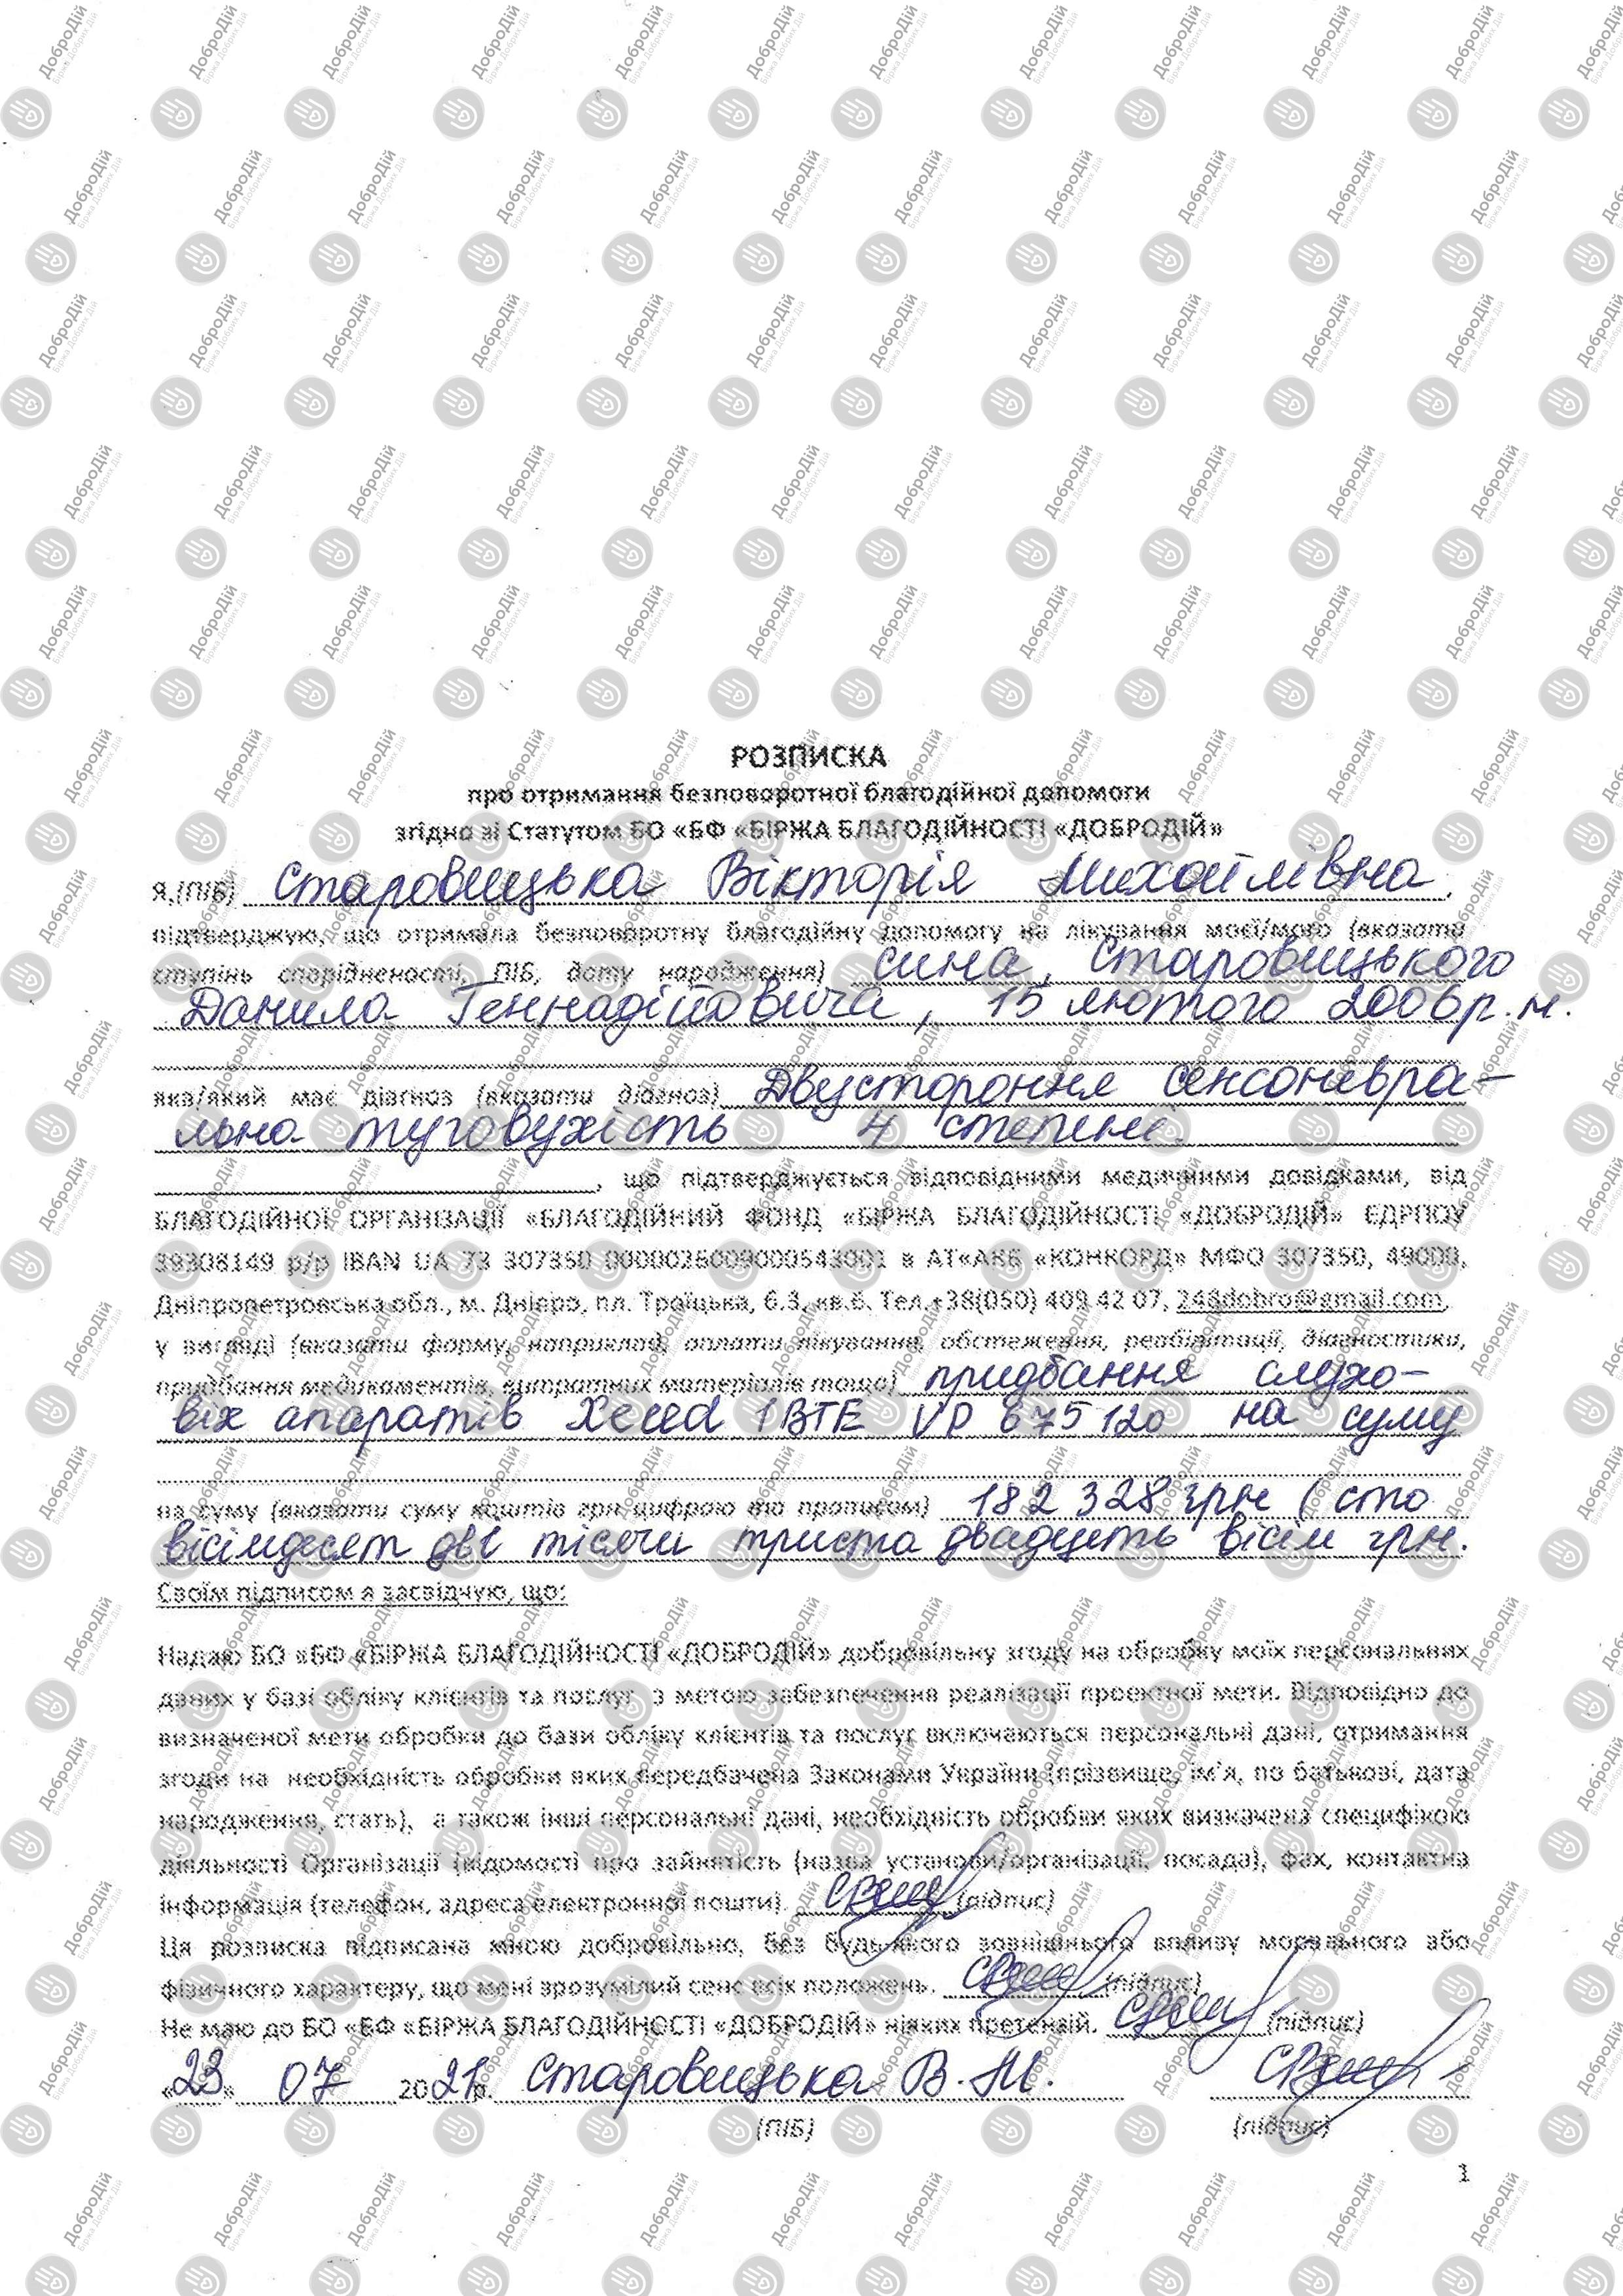 РОЗПИСКА
про отримання безповоротної благодійної допомоги
згідно зі Статутом БО «БФ «БІРЖА БЛАГОДІЙНОСТІ «ДОБРОДІЙ»
Я,(ПІБ) Старовицька Вікторія Михайлівна,
підтверджую, що отримала безповоротну благодійну допомогу на лікування моєї/мого (вказати
ступінь спорідненості, ПІБ, дату народження) сина, Старовицького
Данила Геннадійовича, 15 лютого 2006 р.н.
яка/який має діагноз (вказати діагноз) Двустороння сенсоневра-
льна туговухість 4 степені
, що підтверджується відповідними медичними довідками, від
БЛАГОДІЙНОЇ ОРГАНІЗАЦІЇ «БЛАГОДІЙНИЙ ФОНД «БІРЖА БЛАГОДІЙНОСТІ «ДОБРОДІЙ» ЄДРПОУ
39308149 р/р IBAN UA 73 307350 0000026009000543001 в АТ«АКБ «КОНКОРД» МФО 307350, 49000,
Дніпропетровська обл., м. Дніпро, пл. Троїцька, б.3, кв.6. Тел.+38(050) 409 42 07, 248dobro@gmail.com,
у вигляді (вказати форму, наприклад, оплати лікування, обстеження, реабілітації, діагностики,
придбання медикаментів, витратних матеріалів тощо) придбання слухо-
віх апаратів Xceed 1 BTE VP 675 120 на суму
на суму (вказати суму коштів грн цифрою та прописом) 182 328 грн (сто
вісімдесят дві тисячи триста двадцеть вісім грн.
Своїм підписом я засвідчую, що:
Надаю БО «БФ «БІРЖА БЛАГОДІЙНОСТІ «ДОБРОДІЙ» добровільну згоду на обробку моїх персональних
даних у базі обліку клієнтів та послуг з метою забезпечення реалізації проектної мети. Відповідно до
визначеної мети обробки до бази обліку клієнтів та послуг включаються персональні дані, отримання
згоди на необхідність обробки яких передбачена Законами України (прізвище, ім'я, по батькові, дата
народження, стать), а також інші персональні дані, необхідність обробки яких визначена специфікою
діяльності Організації (відомості про зайнятість (назва установи/організації, посада), фах, контактна
інформація (телефон, адреса електронної пошти). (підпис)
Ця розписка підписана мною добровільно, без будь-якого зовнішнього впливу морального або
фізичного характеру, що мені зрозумілий сенс всіх положень. (підпис)
Не маю до БО «БФ «БІРЖА БЛАГОДІЙНОСТІ «ДОБРОДІЙ» ніяких претензій. (підпис)
«23» 07 2021р. Старовицька В.М.
(ПІБ) (підпис)
1
ДоброДій
Біржа Добрих Дій